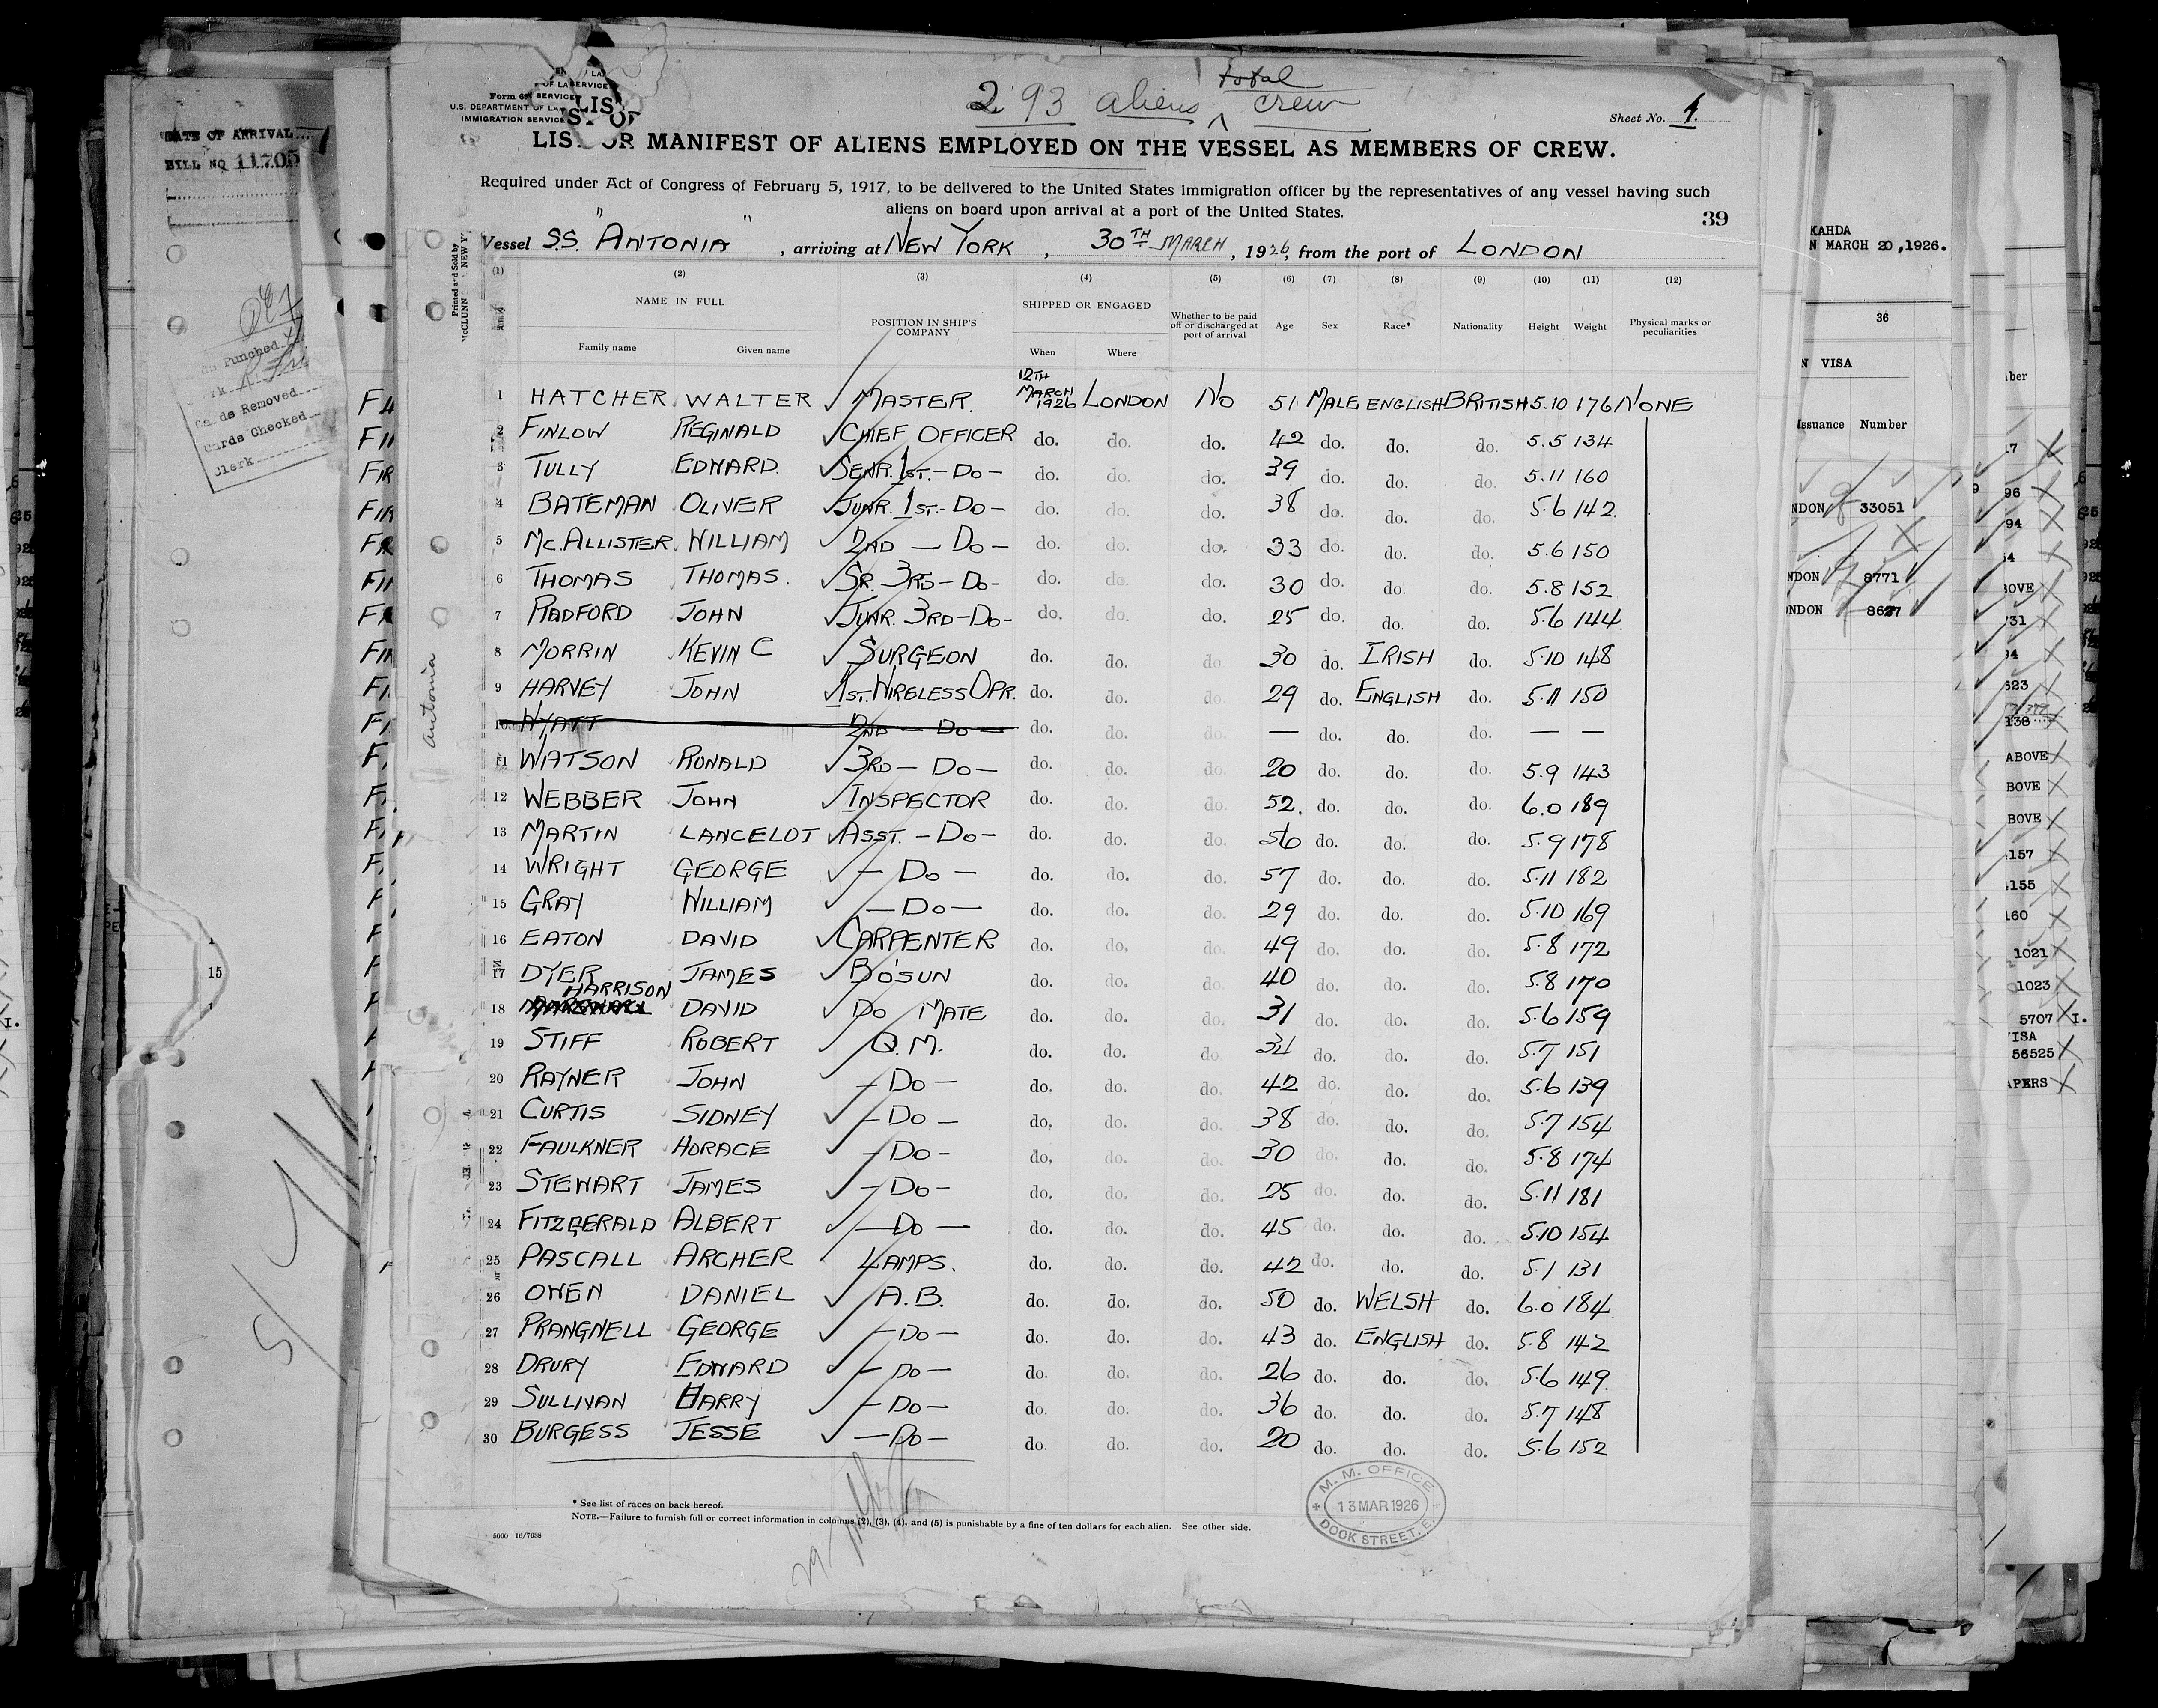 total
293 aliens ^ crew
Sheet No. 1.
LIST OR MANIFEST OF ALIENS EMPLOYED ON THE VESSEL AS MEMBERS OF CREW.
Required under Act of Congress of February 5, 1917, to be delivered to the United States immigration officer by the representatives of any vessel having such
aliens on board upon arrival at a port of the United States.
39
Vessel S.S. "ANTONIA", arriving at NEW YORK, 30TH MARCH, 1926, from the port of LONDON
(1) (2) (3) (4) (5) (6) (7) (8) (9) (10) (11) (12)
NAME IN FULL POSITION IN SHIP'S COMPANY SHIPPED OR ENGAGED Whether to be paid off or discharged at port of arrival Age Sex Race* Nationality Height Weight Physical marks or peculiarities
Family name Given name When Where
1 HATCHER WALTER MASTER. 12TH MARCH 1926 LONDON NO 51 MALE ENGLISH BRITISH 5.10 176 NONE
2 FINLOW REGINALD CHIEF OFFICER do. do. do. 42 do. do. do. 5.5 134
3 TULLY EDWARD. SENR. 1ST. - DO - do. do. do. 39 do. do. do. 5.11 160
4 BATEMAN OLIVER JUNR. 1ST. - DO - do. do. do. 38 do. do. do. 5.6 142.
5 MC.ALLISTER. WILLIAM 2ND - DO - do. do. do. 33 do. do. do. 5.6 150
6 THOMAS THOMAS. SR. 3RD - DO - do. do. do. 30 do. do. do. 5.8 152
7 RADFORD JOHN JUNR. 3RD - DO - do. do. do. 25 do. do. do. 5.6 144.
8 MORRIN KEVIN C SURGEON do. do. do 30 do. IRISH do. 5.10 148
9 HARVEY JOHN 1ST. WIRELESS OPR. do. do. do. 29 do. ENGLISH do. 5.11 150
10 HYATT 2ND - DO - do. do. do. — do. do. do. — —
11 WATSON RONALD 3RD - DO - do. do. do. 20 do. do. do. 5.9 143
12 WEBBER JOHN INSPECTOR do. do. do. 52. do. do. do. 6.0 189
13 MARTIN LANCELOT ASST. - DO - do. do. do. 56 do. do. do. 5.9 178
14 WRIGHT GEORGE - DO - do. do. do. 57 do. do. do. 5.11 182
15 GRAY WILLIAM - DO - do. do. do. 29 do. do. do. 5.10 169
16 EATON DAVID CARPENTER do. do. do. 49 do. do. do. 5.8 172
17 DYER JAMES BO'SUN do. do. do. 40 do. do. do. 5.8 170
18 HARRISON DAVID DO MATE do. do. do. 31 do. do. do. 5.6 159
19 STIFF ROBERT Q.M. do. do. do. 34 do. do. do. 5.7 151
20 RAYNER JOHN - DO - do. do. do. 42 do. do. do. 5.6 139
21 CURTIS SIDNEY. - DO - do. do. do. 38 do. do. do. 5.7 154
22 FAULKNER HORACE - DO - do. do. do. 30 do. do. do. 5.8 174
23 STEWART JAMES - DO - do. do. do. 25 do. do. do. 5.11 181
24 FITZGERALD ALBERT - DO - do. do. do. 45 do. do. do. 5.10 154
25 PASCALL ARCHER LAMPS. do. do. do. 42 do. do. do. 5.1 131
26 OWEN DANIEL A.B. do. do. do. 50 do. WELSH do. 6.0 184
27 PRANGNELL GEORGE - DO - do. do. do. 43 do. ENGLISH do. 5.8 142
28 DRURY EDWARD - DO - do. do. do. 26 do. do. do. 5.6 149.
29 SULLIVAN HARRY - DO - do. do. do. 36 do. do. do. 5.7 148
30 BURGESS JESSE - DO - do. do. do. 20 do. do. do. 5.6 152
* See list of races on back hereof.
NOTE.—Failure to furnish full or correct information in columns (2), (3), (4), and (5) is punishable by a fine of ten dollars for each alien. See other side.
5000 16/7638
M. M. OFFICE
13 MAR 1926
DOCK STREET, E.
Antonia
DATE OF ARRIVAL
BILL NO 11705
Punched
Cards Removed
Cards Checked
Clerk
15
KAHDA
N MARCH 20, 1926.
36
N VISA
Issuance Number
NDON 33051
NDON 8771
ONDON 8627
ABOVE
BOVE
BOVE
1021
1023
5707
56525